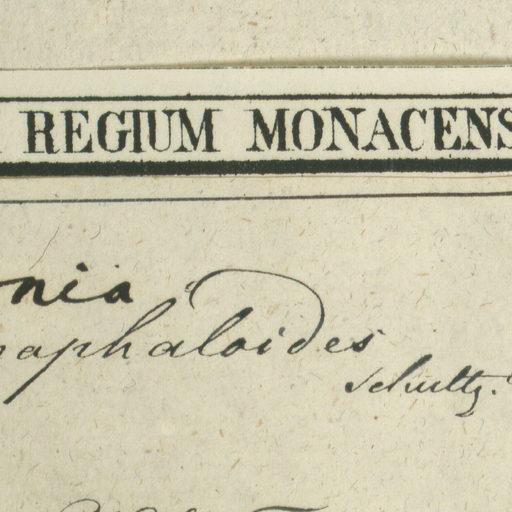 REGIUM MONACENS
nia
naphaloides
Schultz.